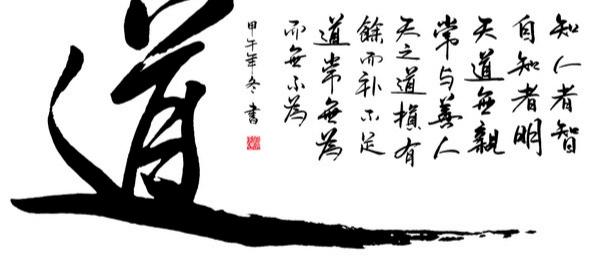 知人者智
自知者明
天道無親
常与善人
天之道損有
餘而补不足
道常無為
而無不為
甲午年冬 書
道